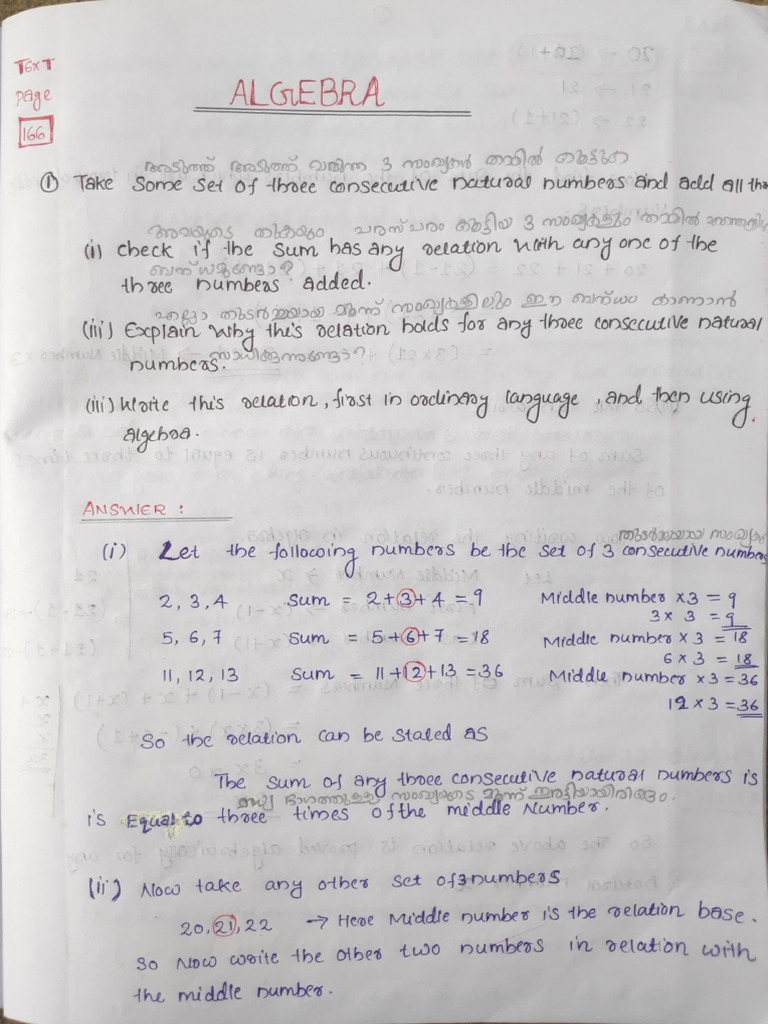 TEXT
page
166
ALGEBRA
അടുത്ത് അടുത്ത് വരുന്ന 3 സംഖ്യകൾ തമ്മിൽ കൂട്ടുക
① Take Some Set of three consecutive natural numbers and add all
അവയുടെ തുകയും പരസ്പരം കൂട്ടിയ 3 സംഖ്യകളും തമ്മിൽ
(i) check if the sum has any relation with any one of the
ബന്ധമുണ്ടോ?
three numbers added.
എല്ലാ തുടർച്ചയായ മൂന്ന് സംഖ്യകളിലും ഈ ബന്ധം കാണാൻ
(iii) Explain why this relation holds for any three consecutive natural
സാധിക്കുന്നുണ്ടോ?
numbers.
(iii) Write this relation, first in ordinary language, and then using
algebra.
ANSWER :
തുടർച്ചയായ
(i) Let the following numbers be the set of 3 consecutive numbers
2, 3, 4 Sum = 2+3+4 = 9 Middle number × 3 = 9
3 × 3 = 9
5, 6, 7 Sum = 5+6+7 = 18 Middle number × 3 = 18
6 × 3 = 18
11, 12, 13 Sum = 11+12+13 = 36 Middle number × 3 = 36
12 × 3 = 36
So the relation can be stated as
The sum of any three consecutive natural numbers is
മധ്യ ഭാഗത്തുള്ള സംഖ്യയുടെ മൂന്ന് ഇരട്ടിയായിരിക്കും.
is Equal to three times of the middle Number.
(ii) Now take any other set of 3 numbers
20, 21, 22 → Here Middle number is the relation base.
So Now write the other two numbers in relation with
the middle number.